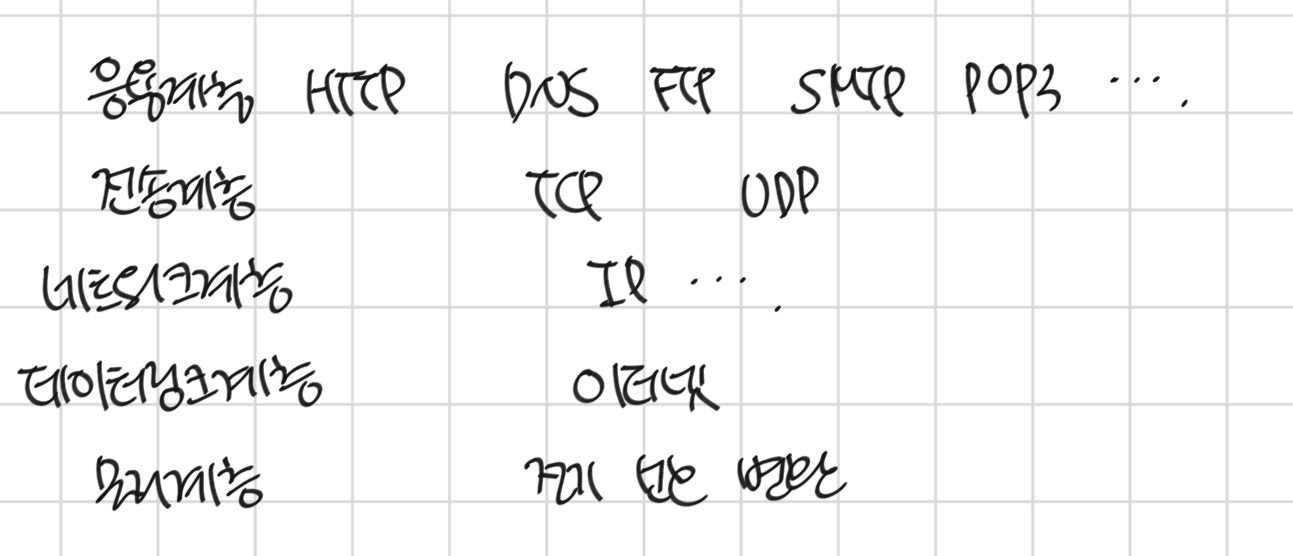 응용계층 HTTP DNS FTP SMTP POP3 ....
전송계층 TCP UDP
네트워크계층 IP ....
데이터링크계층 이더넷
물리계층 변환